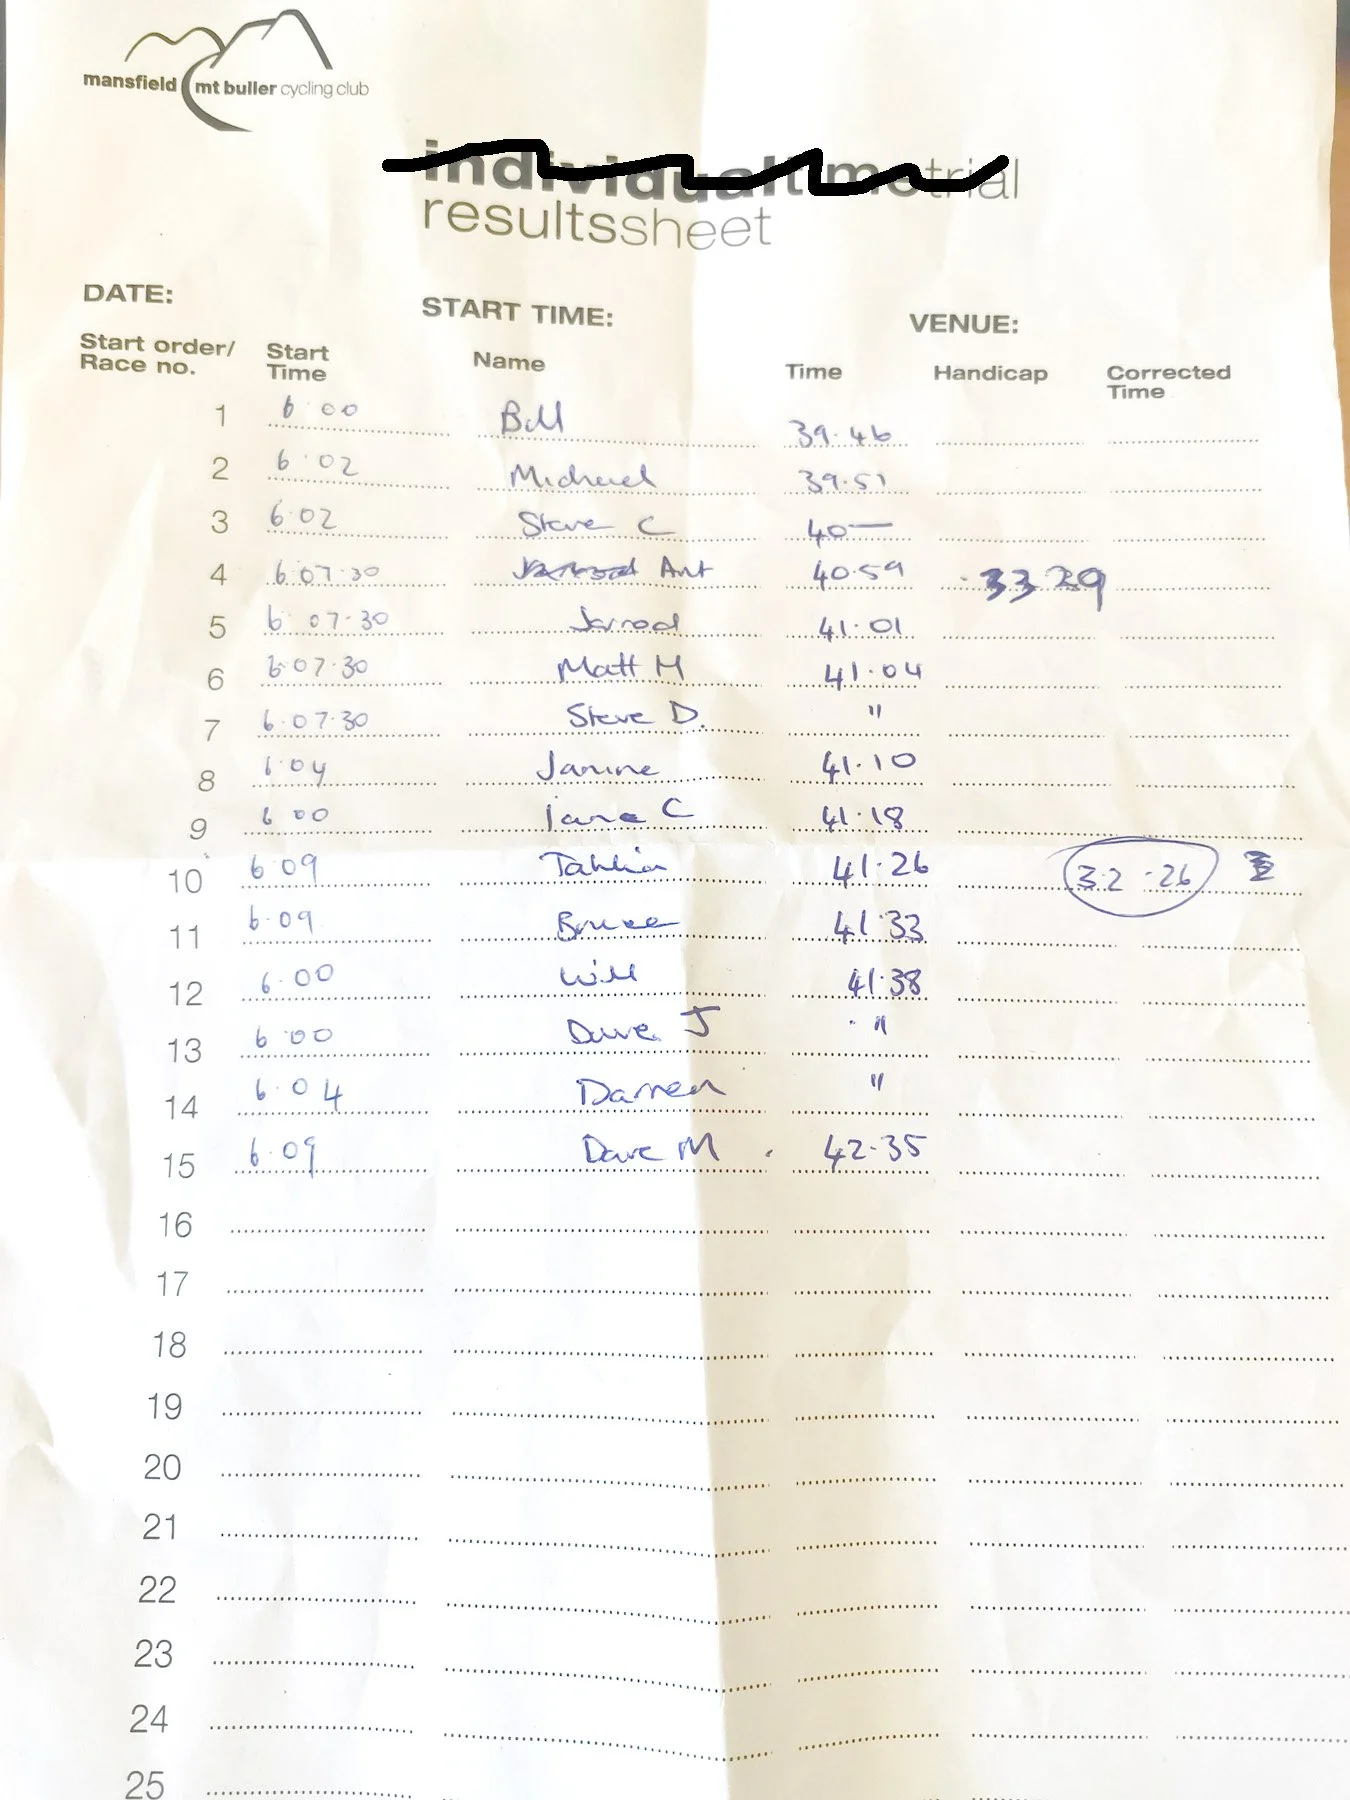 mansfield mt buller cycling club
individualtimetrial
resultssheet
DATE: START TIME: VENUE:
Start order/ Race no. Start Time Name Time Handicap Corrected Time
1 6.00 Bill 39.46
2 6.02 Michael 39.51
3 6.02 Steve C 40—
4 6.07.30 Jarrod Ant 40.59 33 29
5 6.07.30 Jarrod 41.01
6 6.07.30 Matt M 41.04
7 6.07.30 Steve D. "
8 6.04 Janine 41.10
9 6.00 Jane C 41.18
10 6.09 Tahlia 41.26 32.26
11 6.09 Bruce 41.33
12 6.00 Will 41.38
13 6.00 Dave J "
14 6.04 Darren "
15 6.09 Dave M 42.35
16
17
18
19
20
21
22
23
24
25